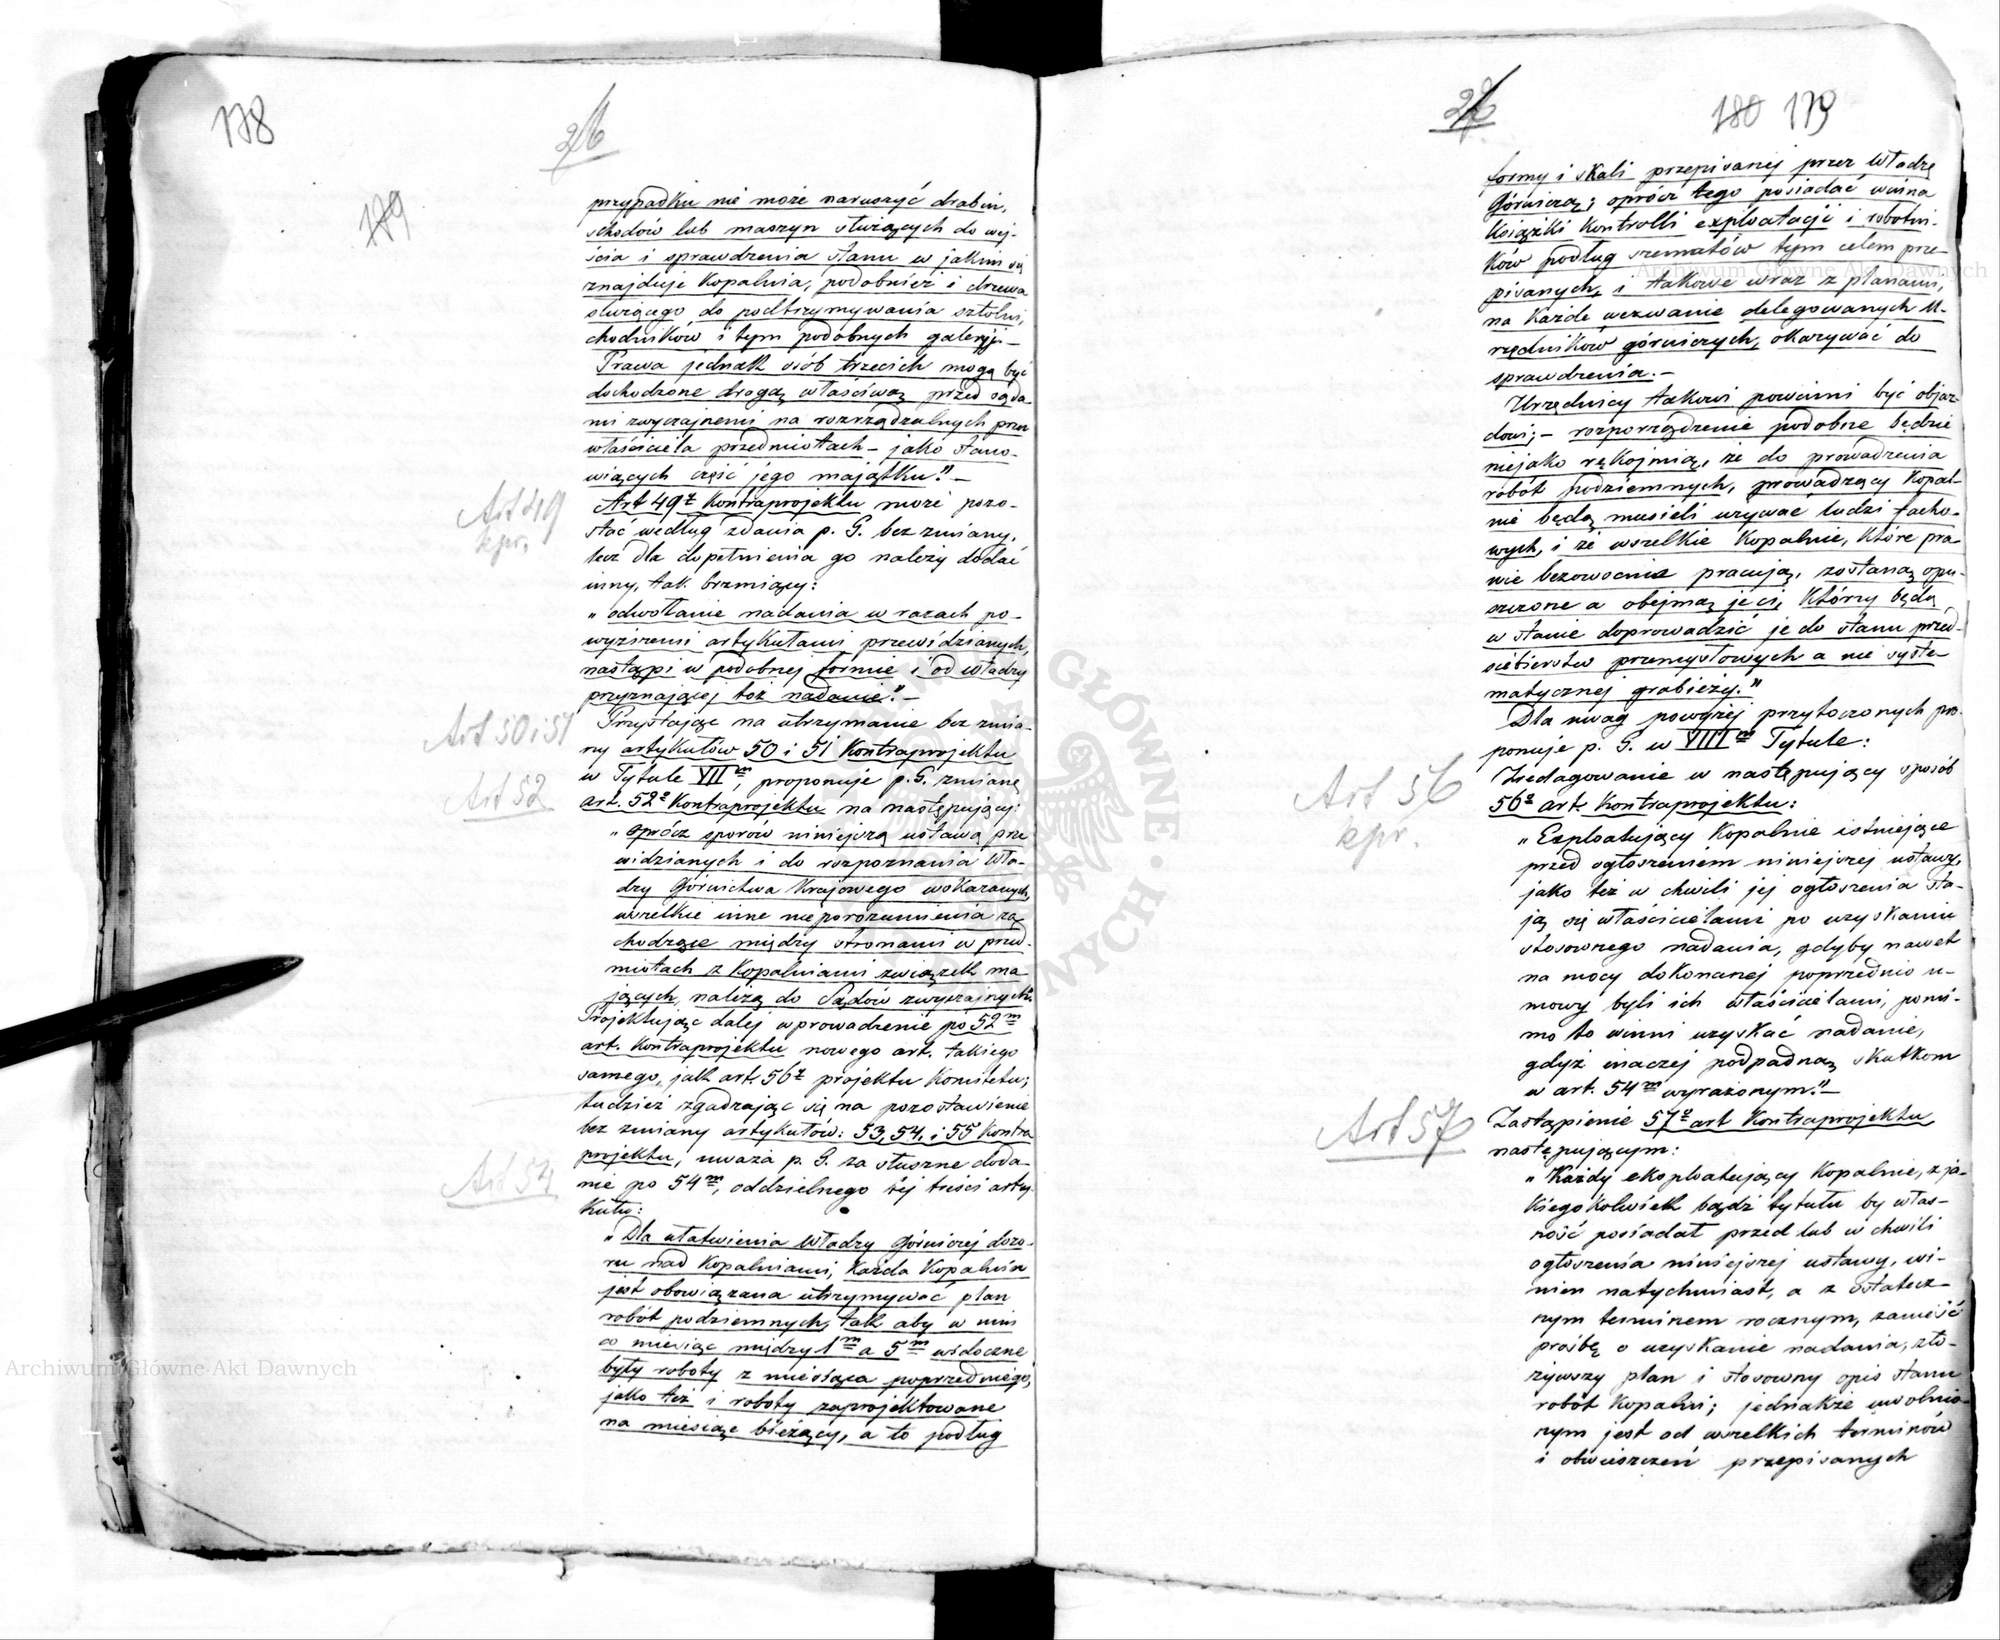 178
26
189
przypadku nie może naruszyć drabin,
schodów lub maszyn służących do wej-
ścia i sprawdzenia stanu w jakim się
znajduje Kopalnia, podobnież i drzewa
służącego do podtrzymywania sztolni,
chodników i tym podobnych galeryj.—
Prawa jednak osób trzecich mogą być
dochodzone drogą właściwą przed sąda-
mi zwyczajnemi na rozrządzalnych przez
właściciela przedmiotach — jako stano-
wiących część jego majątku." —
Art 49
kpr.
Art 49ł Kontraprojektu może pozo-
stać według zdania p. G. bez zmiany,
lecz dla dopełnienia go należy dodać
inny, tak brzmiący:
„odwołanie nadania w razach po-
wyższemi artykułami przewidzianych,
nastąpi w podobnej formie i od władzy
przyznającej toż nadanie." —
Art 50 i 51
Przystając na utrzymanie bez zmia-
ny artykułów 50 i 51 Kontraprojektu
w Tytule VII m, proponuje p. G. zmianę
Art 52
art. 52o Kontraprojektu na następujący:
„oprócz sporów niniejszą ustawą prze
widzianych i do rozpoznania Wła-
dzy Górnictwa Krajowego wskazanych,
wszelkie inne nieporozumienia za-
chodzące między stronami w przed-
miotach z Kopalniami związek ma-
jących, należą do Sądów zwyczajnych."
Projektując dalej wprowadzenie po 52 m
art. Kontraprojektu nowego art. takiego
samego, jak art. 56ł projektu Komitetu;
tudzież zgadzając się na pozostawienie
bez zmiany artykułów: 53, 54, i 55 Kontra
projektu, uważa p. G. za słuszne doda-
Art 54
nie po 54 m, oddzielnego tej treści arty-
kułu:
„Dla ułatwienia Władzy Górniczej dozo-
ru nad Kopalniami, Każda Kopalnia
jest obowiązana utrzymywać plan
robót podziemnych, tak aby w nim
co miesiąc między 1 m a 5 m widoczne
były roboty z miesiąca poprzedniego,
jako też i roboty zaprojektowane
na miesiąc bieżący, a to podług
26
180 179
formy i skali przepisanej przez Władzę
Górniczą; oprócz tego posiadać winna
Książki Kontrolli exploatacji i robotni-
ków podług szematów tym celem prze-
pisanych, i takowe wraz z planami,
na Każde wezwanie delegowanych U-
rzędników górniczych, okazywać do
sprawdzenia. —
Urzędnicy takowi powinni być objaz-
dowi; — rozporządzenie podobne będzie
niejako rękojmią, że do prowadzenia
robót podziemnych, prowadzący Kopal-
nie będą musieli używać ludzi facho-
wych, i że wszelkie Kopalnie, Które pra-
wie bezowocnie pracują, zostaną opu-
szczone a obejmą je ci, Którzy będą
w stanie doprowadzić je do stanu przed-
siębierstw przemysłowych a nie syste-
matycznej grabieży."
Dla uwag powyżej przytoczonych pro-
ponuje p. G. w VIII m Tytule:
Art 56
kpr.
Zredagowanie w następujący sposób
56o art. Kontraprojektu:
„Exploatujący Kopalnie istniejące
przed ogłoszeniem niniejszej ustawy,
jako też w chwili jej ogłoszenia sta-
ją się właścicielami po uzyskaniu
stosownego nadania, gdyby nawet
na mocy dokonanej poprzednio u-
mowy byli ich właścicielami, pomi-
mo to winni uzyskać nadanie,
gdyż inaczej podpadną skutkom
w art. 54 m wyrażonym." —
Art 57
Zastąpienie 57o art Kontraprojektu
następującym:
„Każdy exploatujący Kopalnie, z ja-
kiegokolwiek bądź tytułu by włas-
ność posiadał przed lub w chwili
ogłoszenia niniejszej ustawy, wi-
nien natychmiast, a z ostatecz-
nym terminem rocznym, zanieść
prośbę o uzyskanie nadania, zło-
żywszy plan i stosowny opis stanu
robót Kopalni; jednakże uwolnio-
nym jest od wszelkich terminów
i obwieszczeń przepisanych
Archiwum Główne Akt Dawnych
Archiwum Główne Akt Dawnych